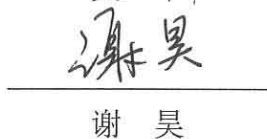 谢昊
谢 昊